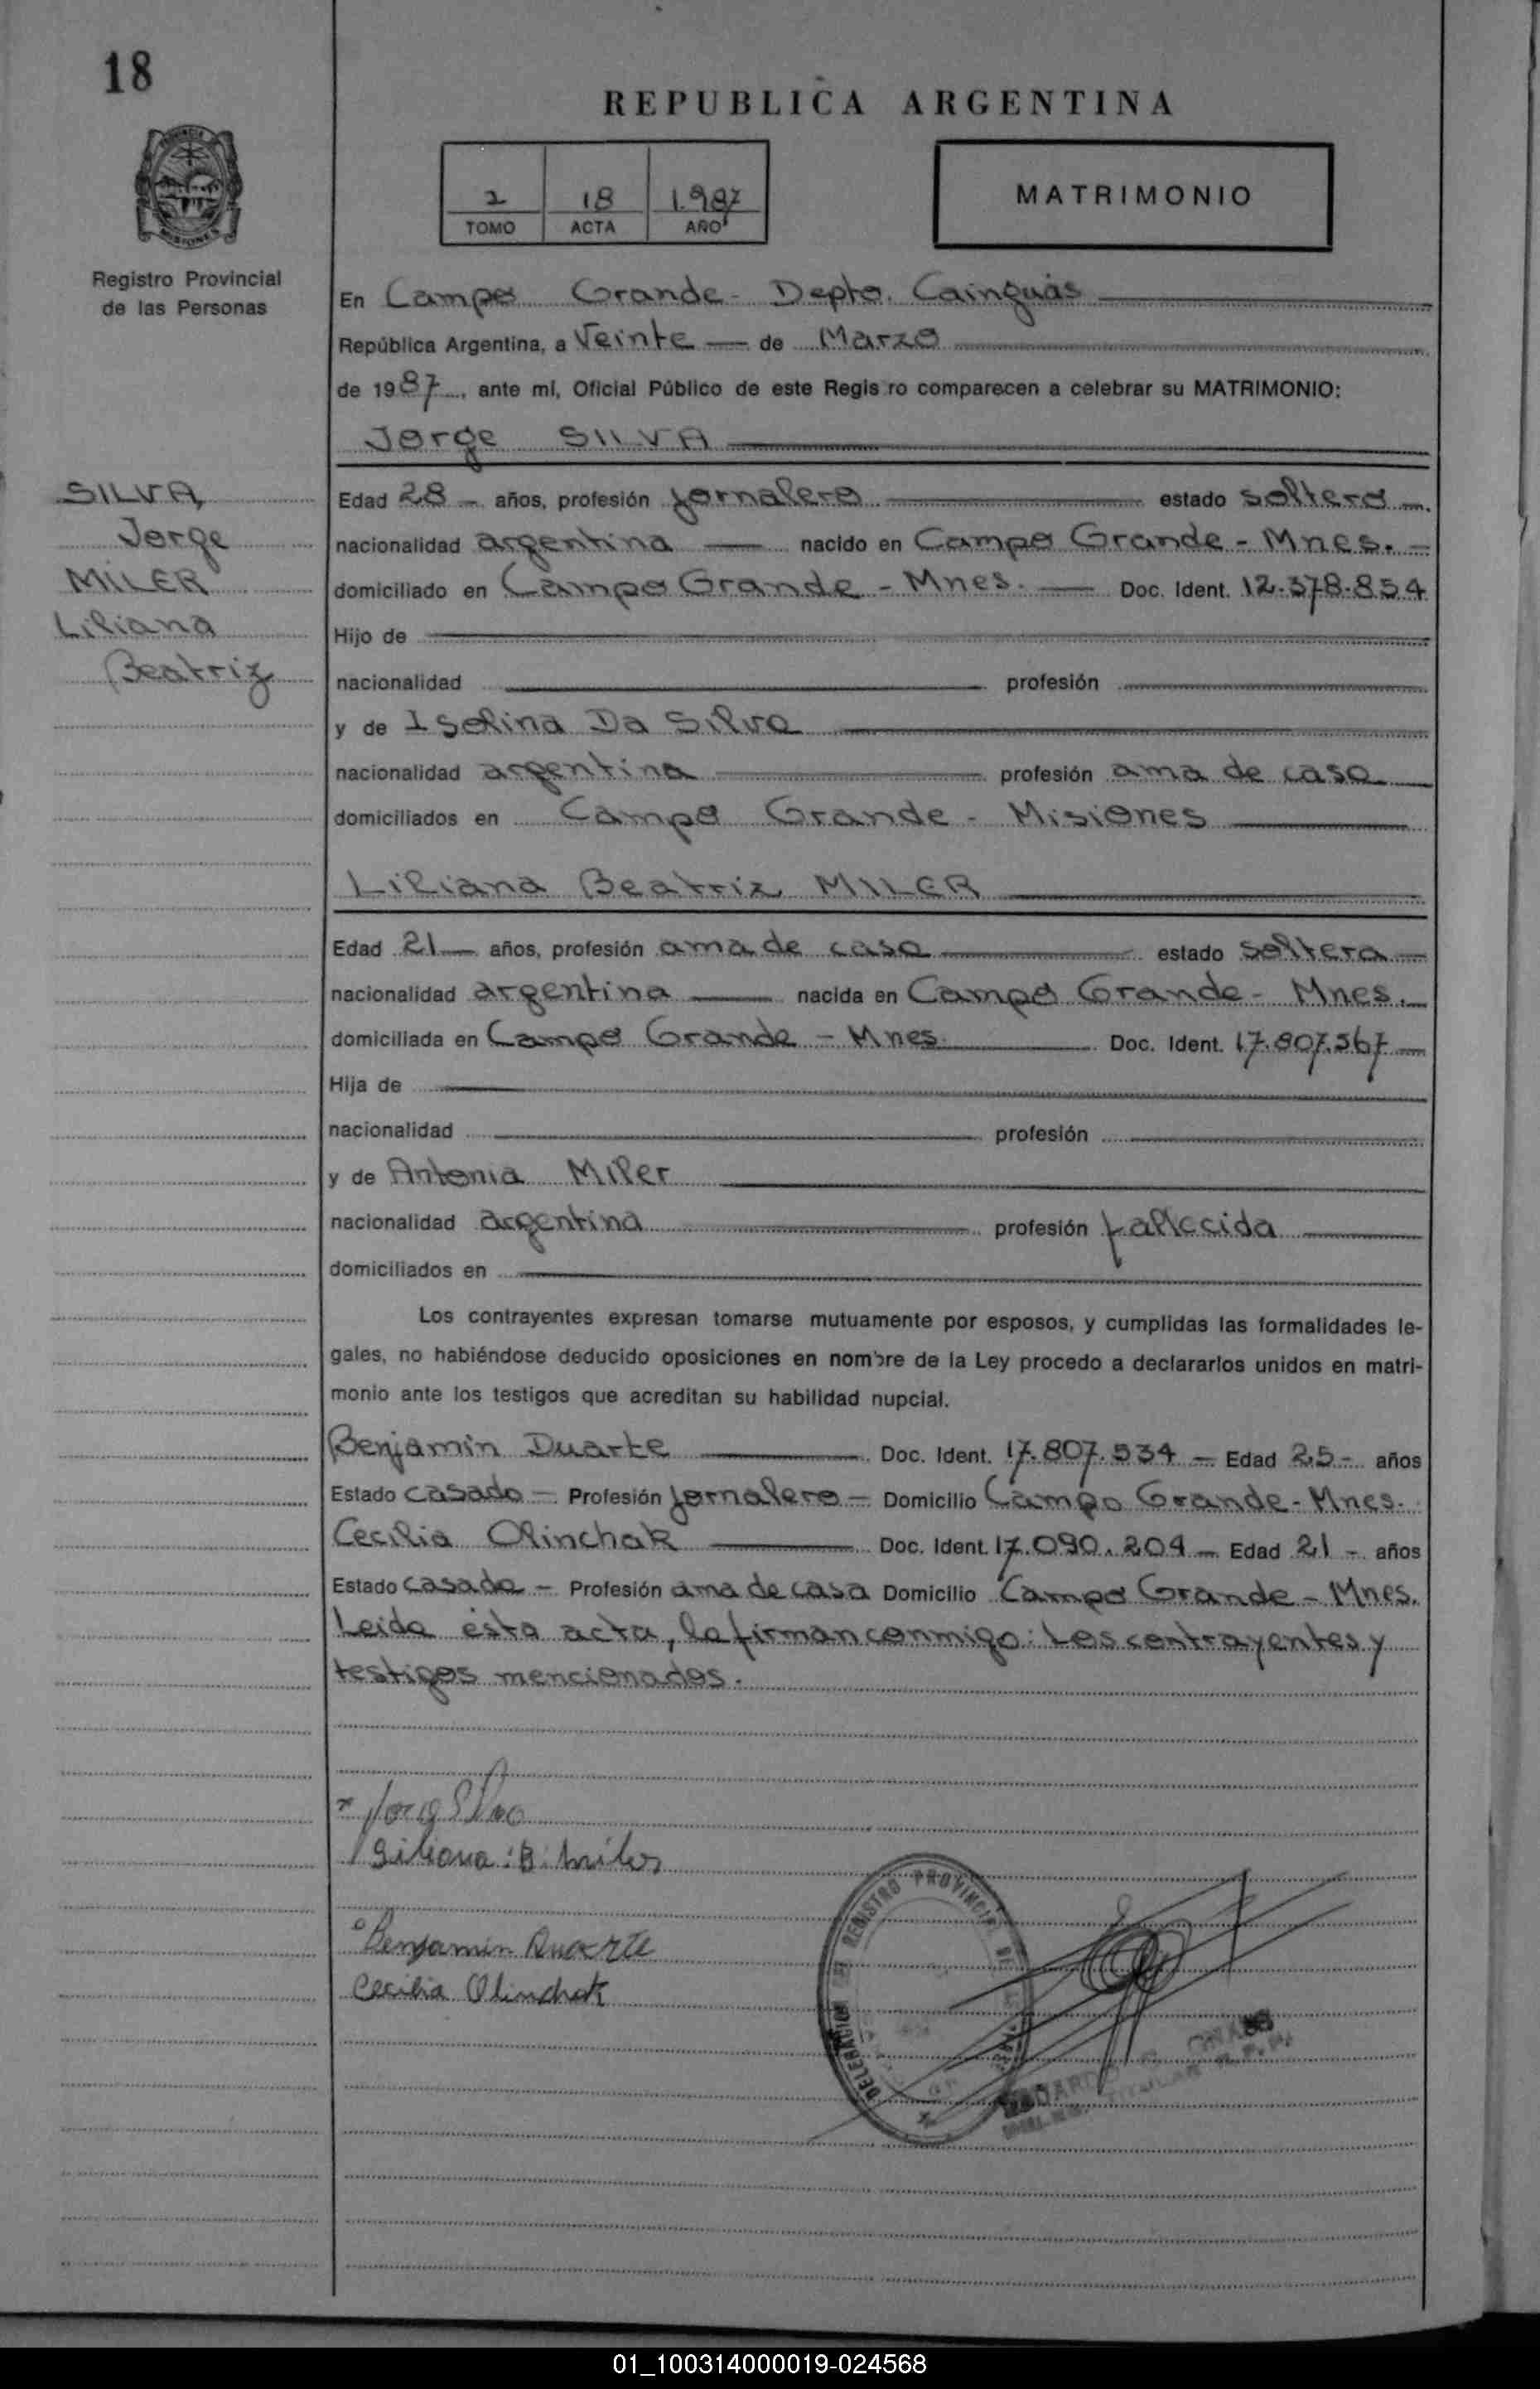 18
REPUBLICA ARGENTINA
2 18 1.987
TOMO ACTA AÑO
MATRIMONIO
Registro Provincial
de las Personas
SILVA,
Jorge
MILER
Liliana
Beatriz
En Campo Grande - Depto. Cainguás
República Argentina, a Veinte — de Marzo
de 1987, ante mí, Oficial Público de este Regis ro comparecen a celebrar su MATRIMONIO:
Jorge SILVA
Edad 28 - años, profesión jornalero estado soltero -
nacionalidad argentina — nacido en Campo Grande - Mnes. -
domiciliado en Campo Grande - Mnes. — Doc. Ident. 12.378.854
Hijo de
nacionalidad profesión
y de Isolina Da Silva
nacionalidad argentina profesión ama de casa
domiciliados en Campo Grande - Misiones
Liliana Beatriz MILER
Edad 21 — años, profesión ama de casa estado soltera -
nacionalidad argentina — nacida en Campo Grande - Mnes.
domiciliada en Campo Grande - Mnes. Doc. Ident. 17.807.567
Hija de
nacionalidad profesión
y de Antonia Miler
nacionalidad argentina profesión fallecida
domiciliados en
Los contrayentes expresan tomarse mutuamente por esposos, y cumplidas las formalidades le-
gales, no habiéndose deducido oposiciones en nombre de la Ley procedo a declararlos unidos en matri-
monio ante los testigos que acreditan su habilidad nupcial.
Benjamín Duarte — Doc. Ident. 17.807.534 - Edad 25 - años
Estado casado - Profesión jornalero - Domicilio Campo Grande - Mnes.
Cecilia Olinchak — Doc. Ident. 17.090.204 - Edad 21 - años
Estado casada - Profesión ama de casa Domicilio Campo Grande - Mnes.
Leida ésta acta, la firman conmigo: Los contrayentes y
testigos mencionados.
Jorg Silva
Liliana: B: Miler
Benjamin Duarte
Cecilia Olinchak
DELEGACION REGISTRO PROVINCIAL DE
TITULAR R.P.P.
01_100314000019-024568